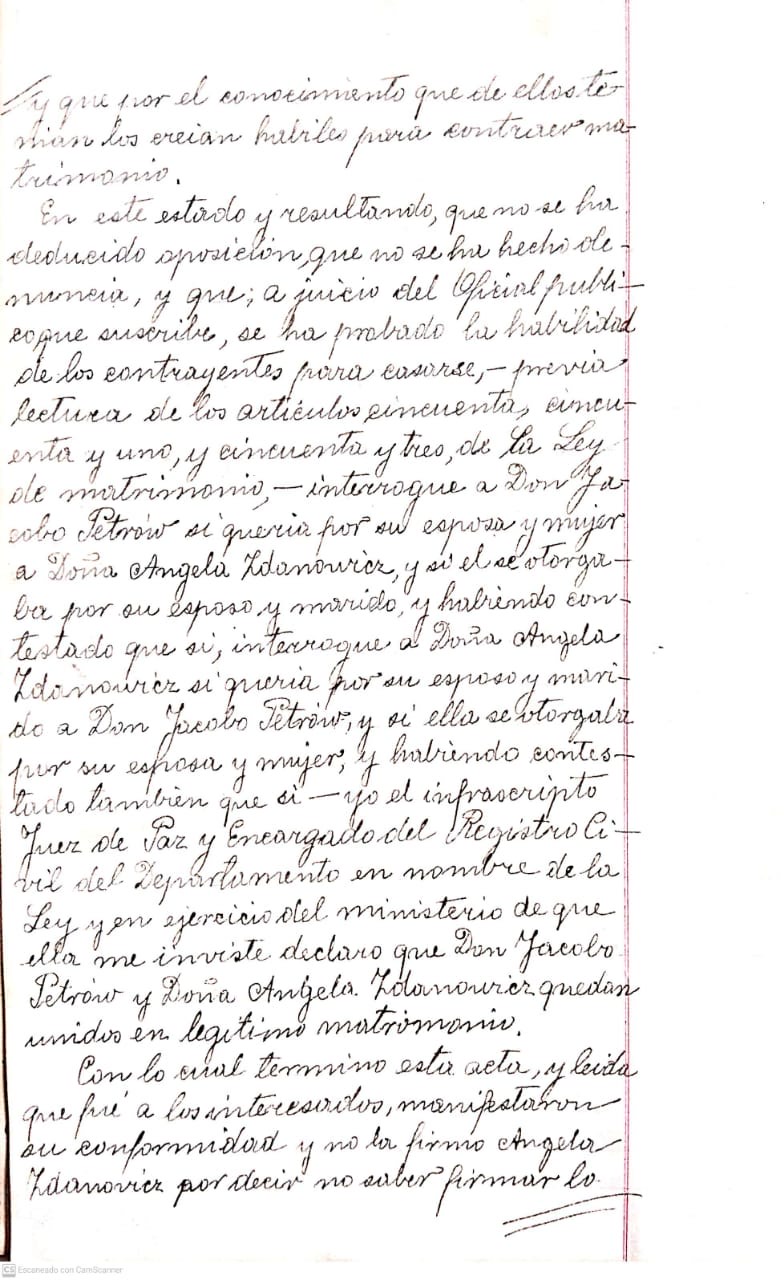 y que por el conocimiento que de ellos te-
nian los creian habiles para contraer ma-
trimonio.
En este estado y resultando, que no se ha
deducido oposición, que no se ha hecho de-
nuncia, y que; a juicio del Oficial publi-
co que suscribe, se ha probado la habilidad
de los contrayentes para casarse, - previa
lectura de los artículos cincuenta, cincu-
enta y uno, y cincuenta y tres, de la Ley
de matrimonio, - interrogue a Don Ja-
cobo Petrów si queria por su esposa y mujer
a Doña Angela Zdanowicz, y si el se otorga-
ba por su esposo y marido, y habiendo con-
testado que si, interrogue a Doña Angela
Zdanowicz si queria por su esposo y mari-
do a Don Jacobo Petrów, y si ella se otorgaba
por su esposa y mujer, y habiendo contes-
tado tambien que si - yo el infrascripto
Juez de Paz y Encargado del Registro Ci-
vil del Departamento en nombre de la
Ley y en ejercicio del ministerio de que
ella me inviste declaro que Don Jacobo
Petrów y Doña Angela Zdanowicz quedan
unidos en legitimo matromonio.
Con lo cual termino esta acta, y leida
que fué a los interesados, manifestaron
su conformidad y no la firmo Angela
Zdanovicz por decir no saber firmar lo
CS Escaneado con CamScanner